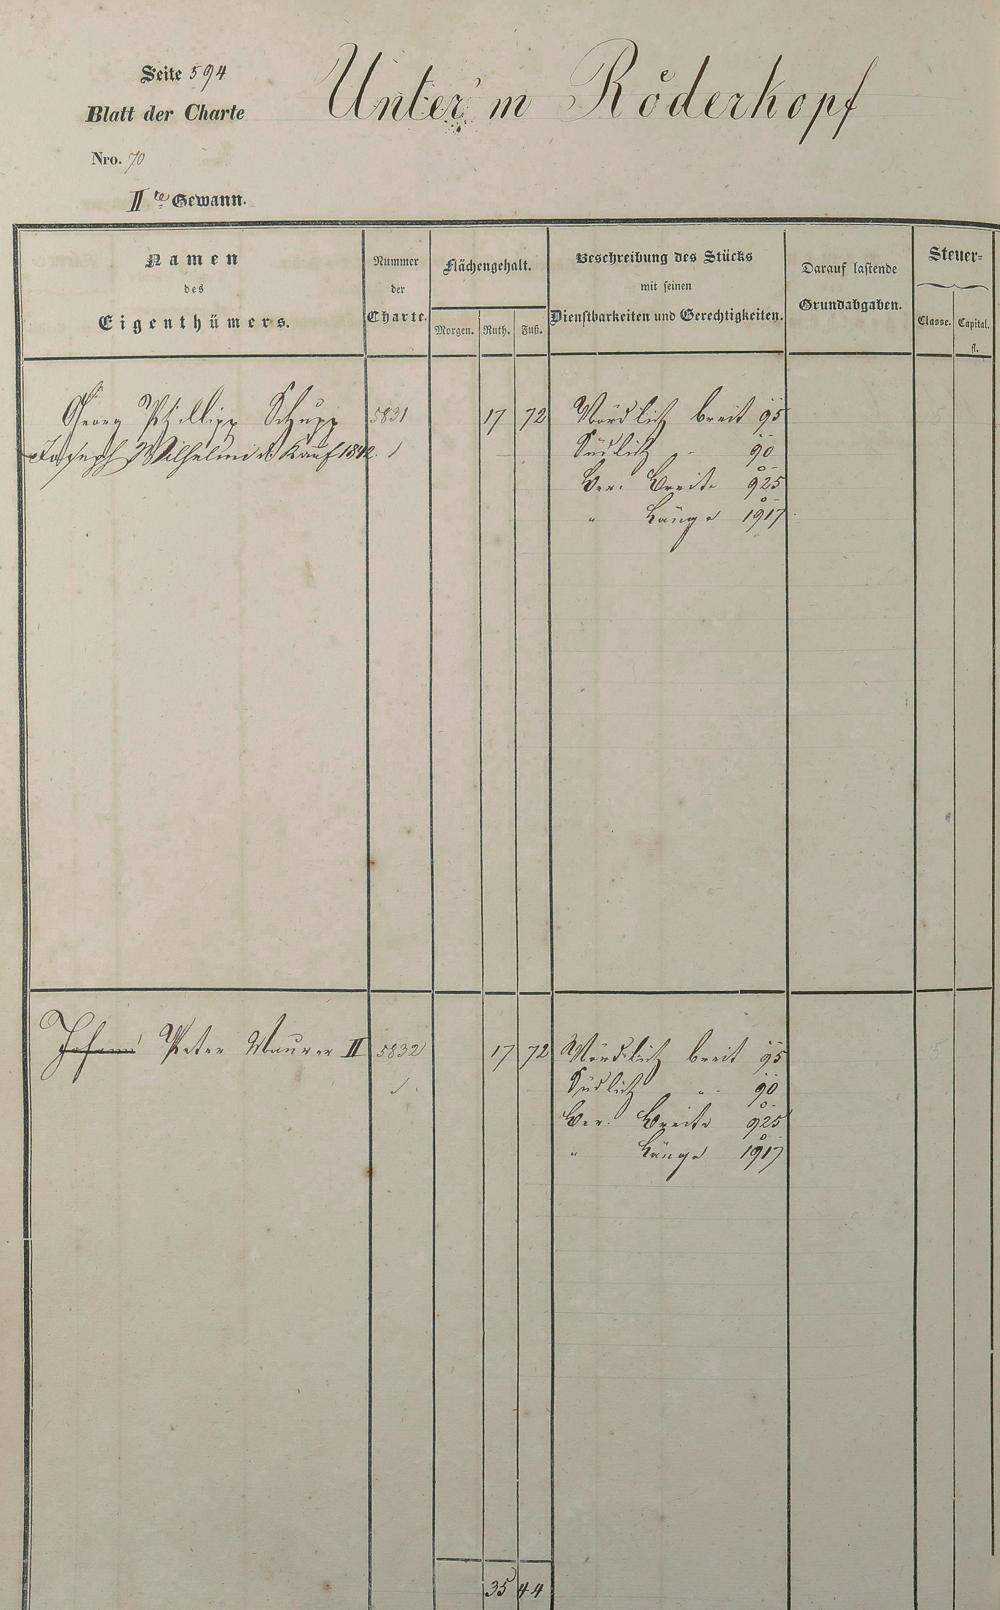 Seite 594
Blatt der Charte
Nro. 70
II te Gewann.
Unter'm Röderkopf
Namen
des
Eigenthümers.
Nummer
der
Charte.
Flächengehalt.
Morgen. Ruth. Fuß.
Beschreibung des Stücks
mit seinen
Dienstbarkeiten und Gerechtigkeiten.
Darauf lastende
Grundabgaben.
Steuer-
Classe. Capital.
fl.
Georg Philipp Schupp 5831 17 72 Nördlich breit 95
Joseph Wilhelmi d. Kauf 1842. Südlich " 90
Ver. Breite 925
" Länge 1917
Johann Peter Maurer II 5832 17 72 Nördlich breit 95
Südlich " 90
Ver. Breite 925
" Länge 1917
35 44